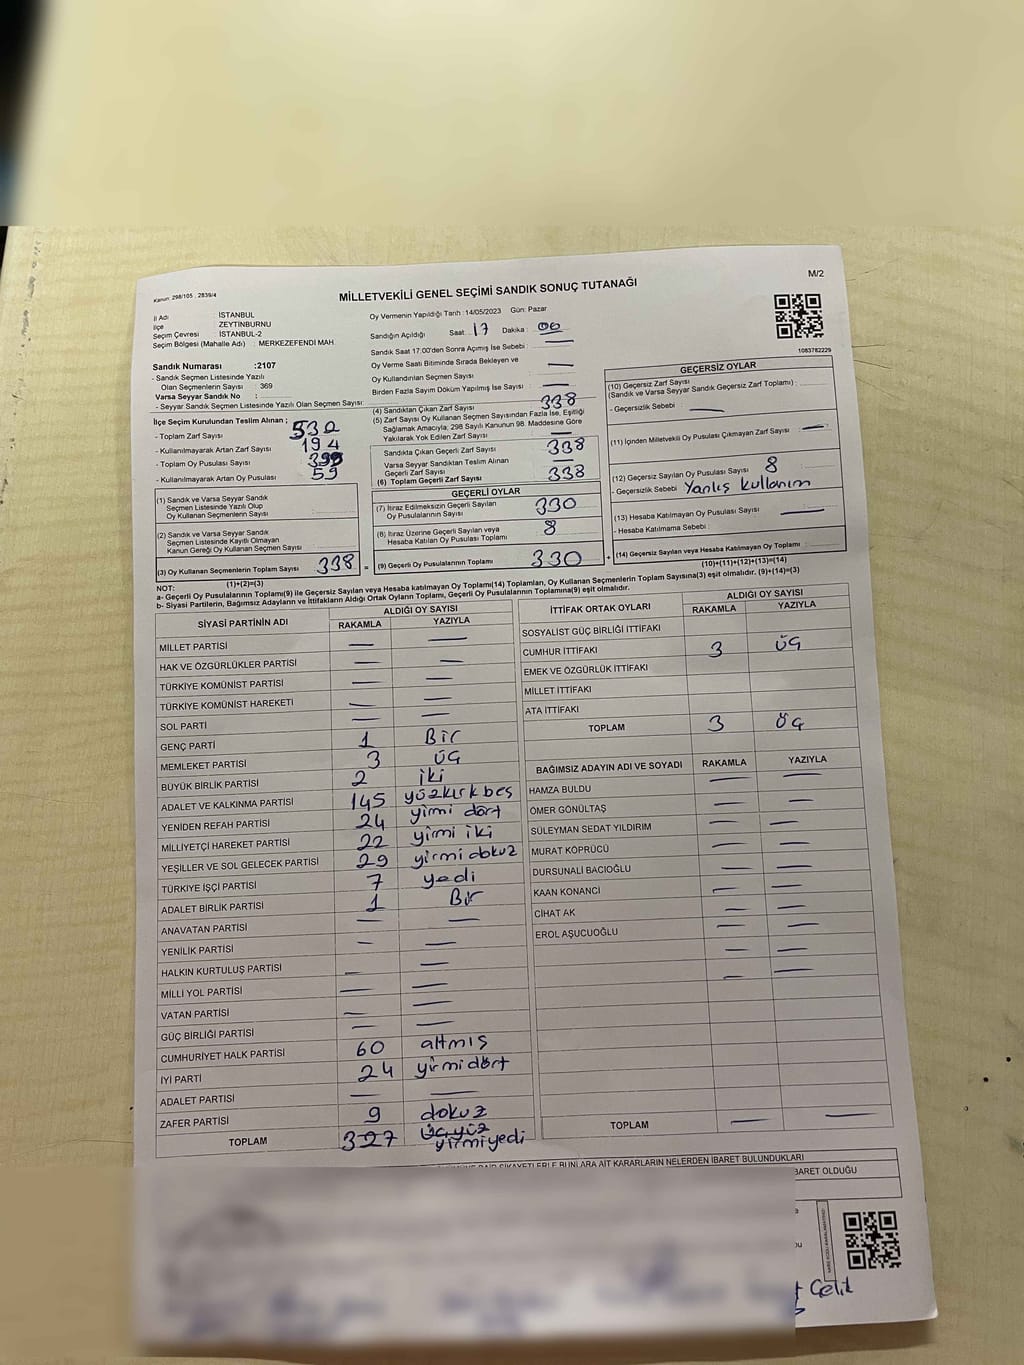 Kanun: 298/105 ; 2839/4
M/2
MİLLETVEKİLİ GENEL SEÇİMİ SANDIK SONUÇ TUTANAĞI
İl Adı : İSTANBUL
İlçe : ZEYTİNBURNU
Seçim Çevresi : İSTANBUL-2
Seçim Bölgesi (Mahalle Adı) : MERKEZEFENDİ MAH.
Sandık Numarası :2107
- Sandık Seçmen Listesinde Yazılı
Olan Seçmenlerin Sayısı : 369
Varsa Seyyar Sandık No :
- Seyyar Sandık Seçmen Listesinde Yazılı Olan Seçmen Sayısı:
İlçe Seçim Kurulundan Teslim Alınan ;
- Toplam Zarf Sayısı 532
- Kullanılmayarak Artan Zarf Sayısı 194
- Toplam Oy Pusulası Sayısı
- Kullanılmayarak Artan Oy Pusulası 59
(1) Sandık ve Varsa Seyyar Sandık
Seçmen Listesinde Yazılı Olup
Oy Kullanan Seçmenlerin Sayısı
(2) Sandık ve Varsa Seyyar Sandık
Seçmen Listesinde Kayıtlı Olmayan
Kanun Gereği Oy Kullanan Seçmen Sayısı
(3) Oy Kullanan Seçmenlerin Toplam Sayısı 338
(1)+(2)=(3)
Oy Vermenin Yapıldığı Tarih :14/05/2023 Gün: Pazar
Sandığın Açıldığı Saat: 17 Dakika: 00
Sandık Saat 17:00'den Sonra Açımış İse Sebebi :
Oy Verme Saati Bitiminde Sırada Bekleyen ve —
Oy Kullandırılan Seçmen Sayısı
Birden Fazla Sayım Döküm Yapılmış İse Sayısı : —
(4) Sandıktan Çıkan Zarf Sayısı 338
(5) Zarf Sayısı Oy Kullanan Seçmen Sayısından Fazla İse, Eşitliği
Sağlamak Amacıyla; 298 Sayılı Kanunun 98. Maddesine Göre
Yakılarak Yok Edilen Zarf Sayısı —
Sandıkta Çıkan Geçerli Zarf Sayısı 338
Varsa Seyyar Sandıktan Teslim Alınan
Geçerli Zarf Sayısı —
(6) Toplam Geçerli Zarf Sayısı 338
GEÇERLİ OYLAR
(7) İtiraz Edilmeksizin Geçerli Sayılan
Oy Pusulalarının Sayısı 330
(8) İtiraz Üzerine Geçerli Sayılan veya
Hesaba Katılan Oy Pusulası Toplamı 8
= (9) Geçerli Oy Pusulalarının Toplamı 330
1083782229
GEÇERSİZ OYLAR
(10) Geçersiz Zarf Sayısı
(Sandık ve Varsa Seyyar Sandık Geçersiz Zarf Toplamı) :
- Geçersizlik Sebebi : —
(11) İçinden Milletvekili Oy Pusulası Çıkmayan Zarf Sayısı : —
(12) Geçersiz Sayılan Oy Pusulası Sayısı 8
- Geçersizlik Sebebi : Yanlış kullanım
(13) Hesaba Katılmayan Oy Pusulası Sayısı —
- Hesaba Katılmama Sebebi :
+ (14) Geçersiz Sayılan veya Hesaba Katılmayan Oy Toplamı
(10)+(11)+(12)+(13)=(14)
NOT:
a- Geçerli Oy Pusulalarının Toplamı(9) ile Geçersiz Sayılan veya Hesaba katılmayan Oy Toplamı(14) Toplamları, Oy Kullanan Seçmenlerin Toplam Sayısına(3) eşit olmalıdır. (9)+(14)=(3)
b- Siyasi Partilerin, Bağımsız Adayların ve İttifakların Aldığı Ortak Oyların Toplamı, Geçerli Oy Pusulalarının Toplamına(9) eşit olmalıdır.
SİYASİ PARTİNİN ADI ALDIĞI OY SAYISI
RAKAMLA YAZIYLA
MİLLET PARTİSİ — —
HAK VE ÖZGÜRLÜKLER PARTİSİ — —
TÜRKİYE KOMÜNİST PARTİSİ — —
TÜRKİYE KOMÜNİST HAREKETİ — —
SOL PARTİ — —
GENÇ PARTİ 1 Bir
MEMLEKET PARTİSİ 3 üç
BÜYÜK BİRLİK PARTİSİ 2 iki
ADALET VE KALKINMA PARTİSİ 145 yüzkırkbeş
YENİDEN REFAH PARTİSİ 24 yirmi dört
MİLLİYETÇİ HAREKET PARTİSİ 22 yirmi iki
YEŞİLLER VE SOL GELECEK PARTİSİ 29 yirmi dokuz
TÜRKİYE İŞÇİ PARTİSİ 7 yedi
ADALET BİRLİK PARTİSİ 1 Bir
ANAVATAN PARTİSİ — —
YENİLİK PARTİSİ — —
HALKIN KURTULUŞ PARTİSİ — —
MİLLİ YOL PARTİSİ — —
VATAN PARTİSİ — —
GÜÇ BİRLİĞİ PARTİSİ — —
CUMHURİYET HALK PARTİSİ 60 altmış
İYİ PARTİ 24 yirmi dört
ADALET PARTİSİ — —
ZAFER PARTİSİ 9 dokuz
TOPLAM 327 üçyüz yirmiyedi
İTTİFAK ORTAK OYLARI ALDIĞI OY SAYISI
RAKAMLA YAZIYLA
SOSYALİST GÜÇ BİRLİĞİ İTTİFAKI
CUMHUR İTTİFAKI 3 üç
EMEK VE ÖZGÜRLÜK İTTİFAKI
MİLLET İTTİFAKI
ATA İTTİFAKI
TOPLAM 3 üç
BAĞIMSIZ ADAYIN ADI VE SOYADI RAKAMLA YAZIYLA
HAMZA BULDU — —
ÖMER GÖNÜLTAŞ — —
SÜLEYMAN SEDAT YILDIRIM — —
MURAT KÖPRÜCÜ — —
DURSUNALİ BACIOĞLU — —
KAAN KONANCİ — —
CİHAT AK — —
EROL AŞUCUOĞLU — —
TOPLAM — —
ŞİKAYETLERLE BUNLARA AİT KARARLARIN NELERDEN İBARET BULUNDUKLARI
İBARET OLDUĞU
Çelik